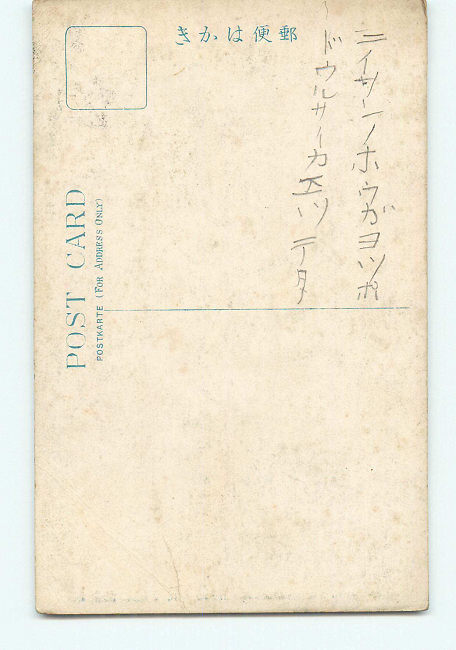 郵便はかき
ニイサンノホウガヨツポ
ドウルサイカエツテタ
POST CARD
POSTKARTE (FOR ADDRESS ONLY)